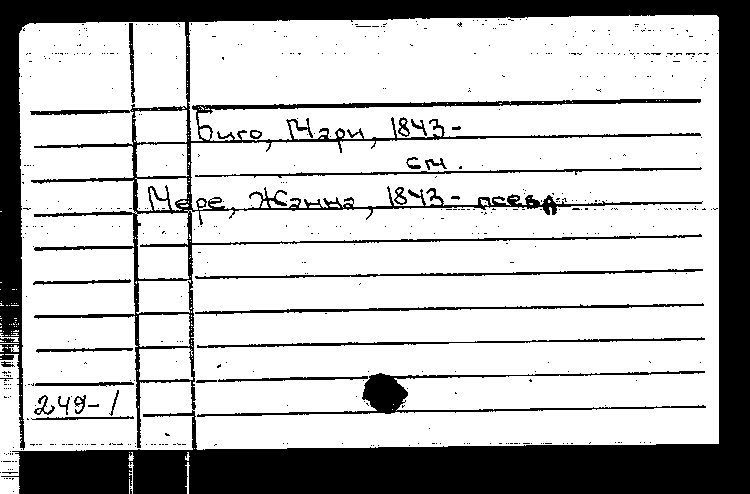 Биго, Мари, 1843-
см.
Мере, Жанна, 1843- псевд
249-1